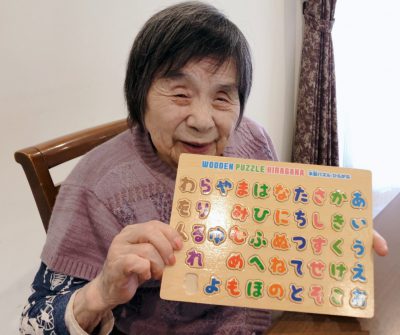 WOODEN PUZZLE HIRAGANA 木製パズル ひらがな
わらやまはなたさかあ
をりみひにちしきい
んるゆむふぬつすくう
れめへねてせけえ
よもほのとそこお